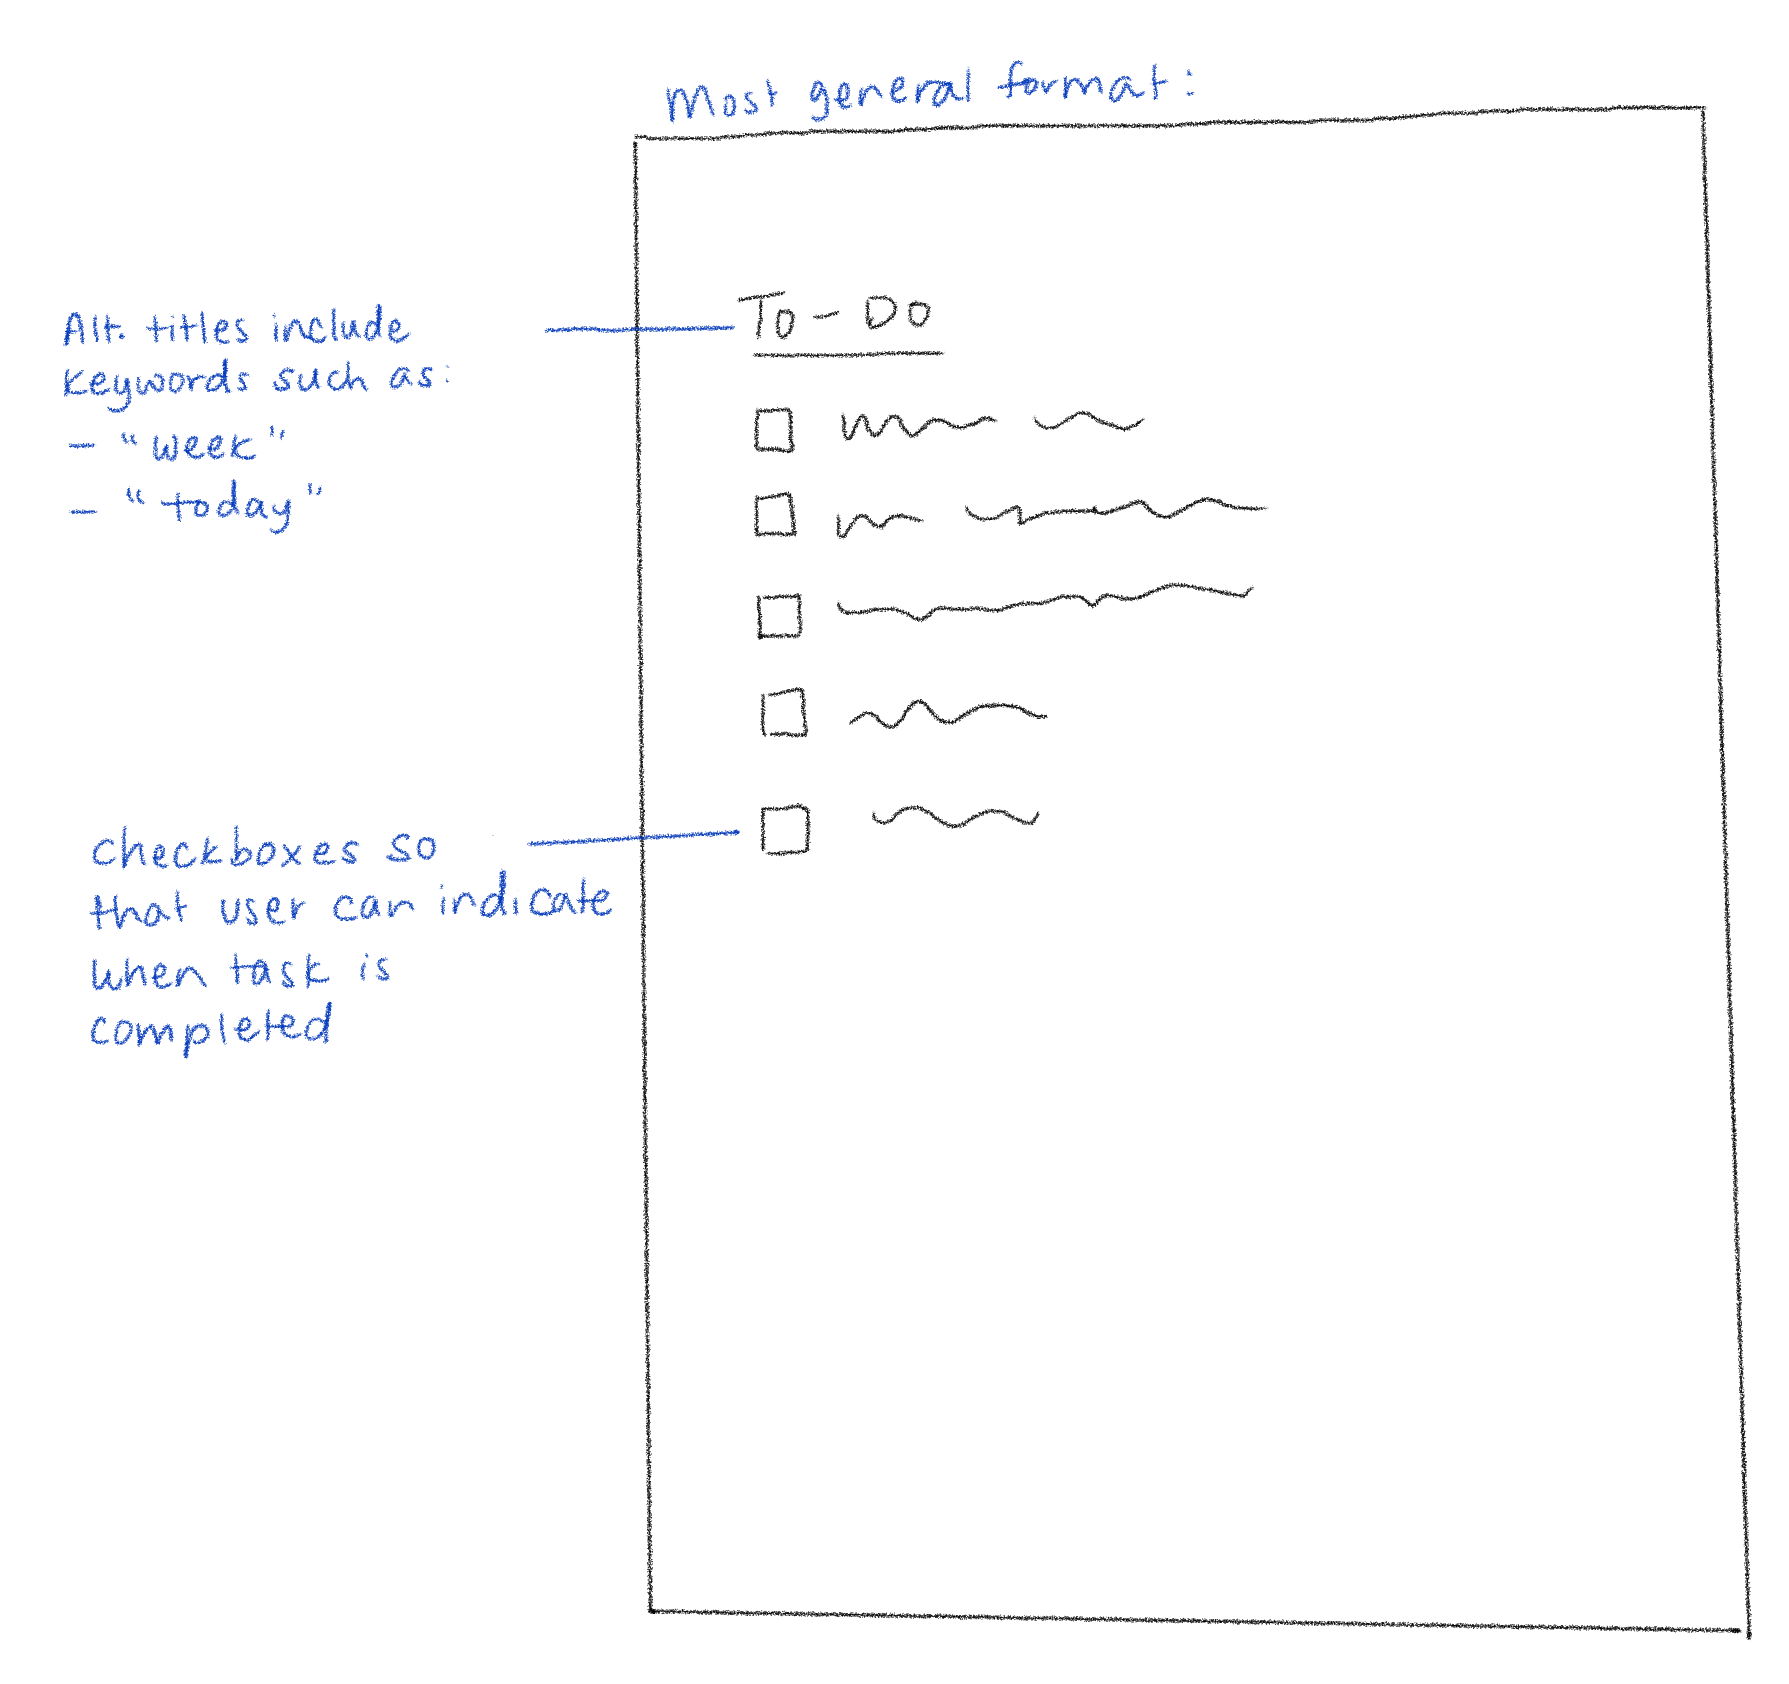 Most general format:
To-Do
Alt. titles include
keywords such as:
- "week"
- "today"
checkboxes so
that user can indicate
when task is
completed